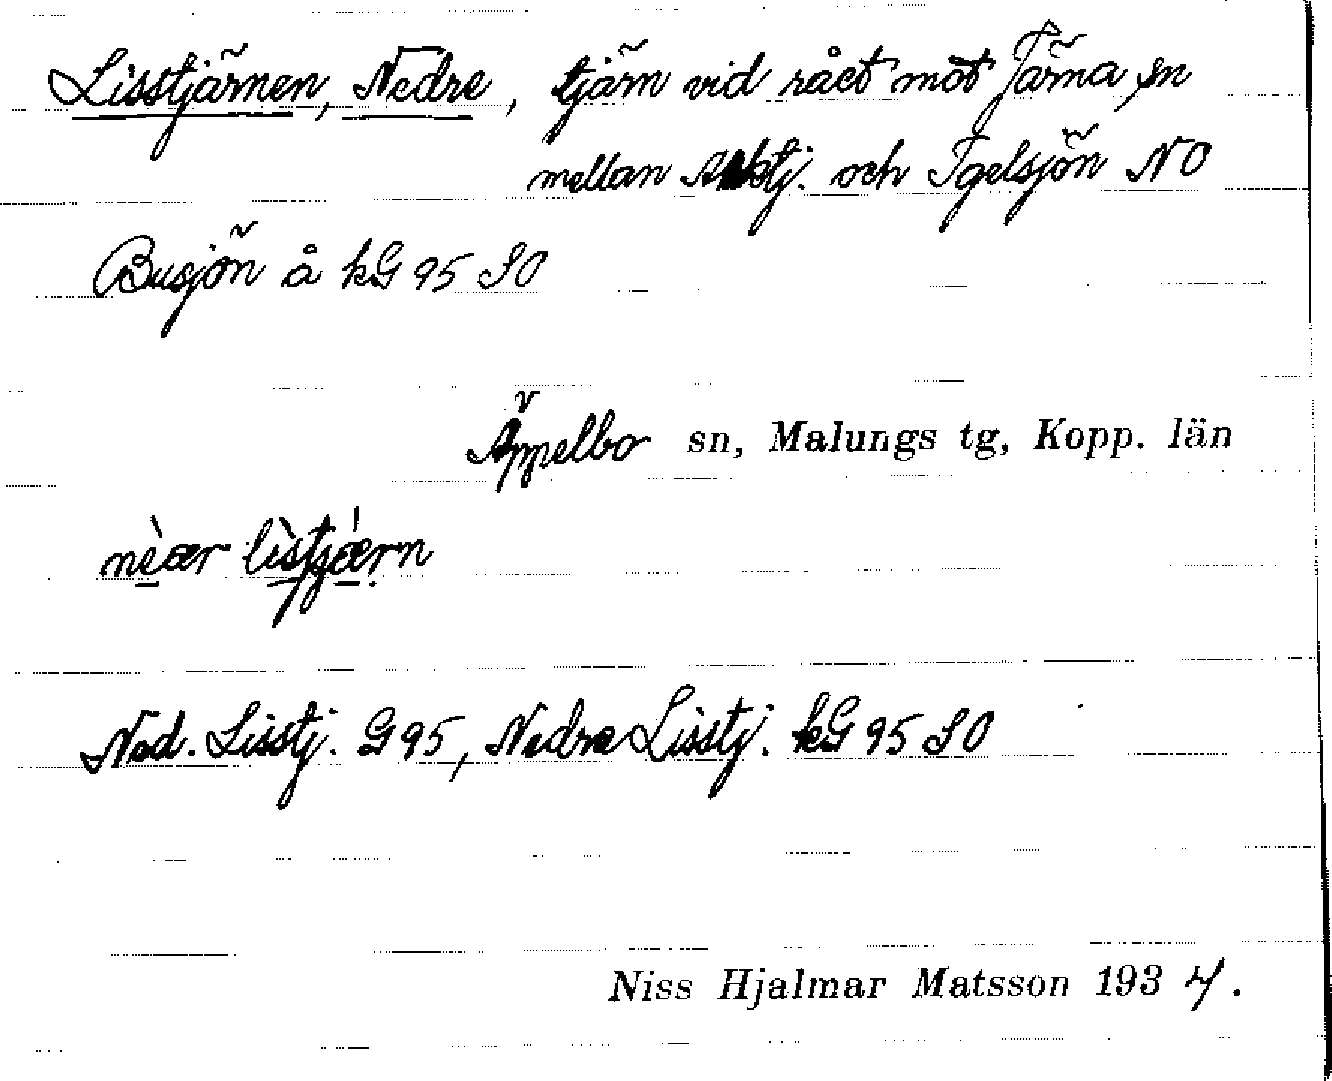 Lisstjärnen, Nedre, tjärn vid rået mot Järna sn
mellan och Igelsjön NO
Busjön å kG 95 SO
Äppelbo sn, Malungs tg, Kopp. län
nèær lìstjǽrn
Ned. Lisstj. G 95, Nedre Lisstj. kG 95 SO
Niss Hjalmar Matsson 1934.